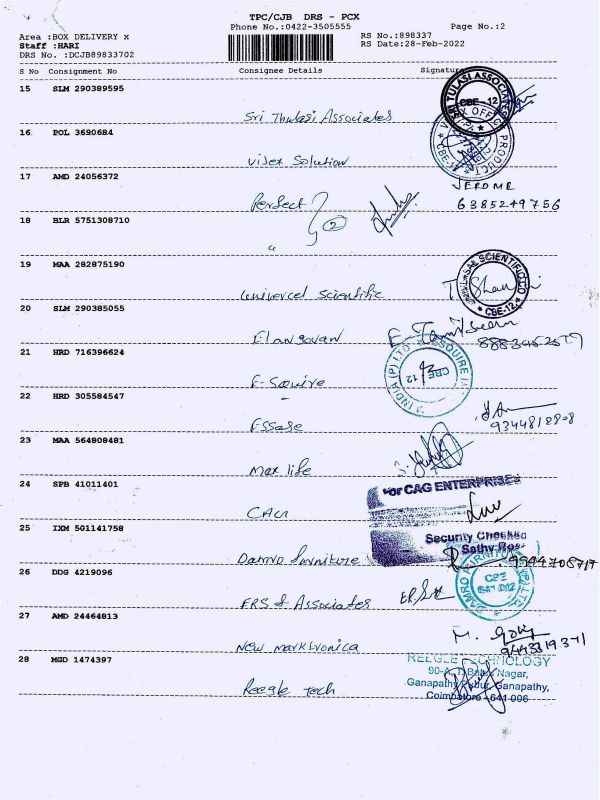 TPC/CJB DRS - PCX
Phone No.:0422-3505555 Page No.:2
Area :BOX DELIVERY x RS No.:898337
Staff :HARI RS Date:28-Feb-2022
DRS No. :DCJB89833702
S No Consignment No Consignee Details Signature
15 SLM 290389595
Sri Thulasi Associates
TULASI ASSOCIATES CBE-12
16 POL 3690684
Visex Solution
17 AMD 24056372
Perfect 2
JEROME
6385249756
18 BLR 5751308710
"
19 MAA 282875190
Univercel Scientific
SCIENTIFIC CO CBE-12
20 SLM 290385055
Elangovan
21 HRD 716396624
E-Squire
ESQUIRE INDIA (P) LTD CBE 12
22 HRD 305584547
Essae
9344818808
23 MAA 564808481
Max life
24 SPB 41011401
CAG
For CAG ENTERPRISES
Security Checked
Sathy Road
25 IXM 501141758
Damro Furniture
9944708717
DAMRO FURNITURE (P) LTD. CBE 641 012
26 DDG 4219096
ERS & Associates
27 AMD 24464813
New Marktronica
M. Gokul
9443319371
28 MGD 1474397
Reegle Tech
REEGLE TECHNOLOGY
90-A, Nagar,
Ganapathy Pudur, Ganapathy,
Coimbatore - 641 006